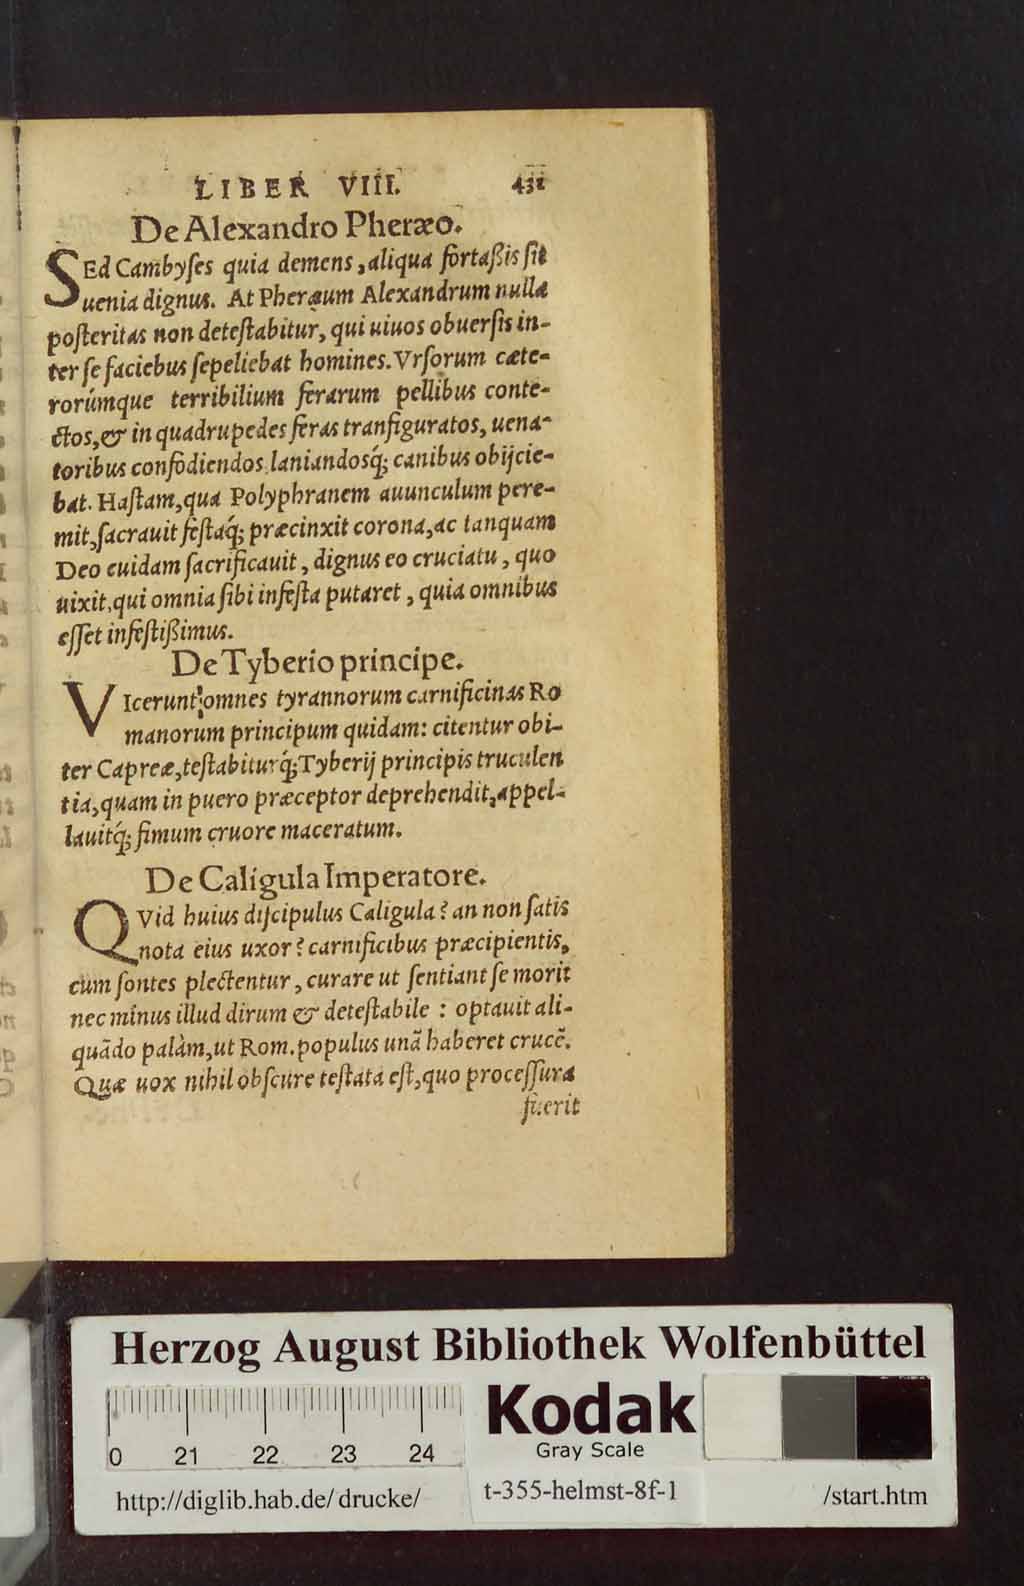 LIBER VIII. 431
De Alexandro Pheræo.
SEd Cambyſes quia demens, aliqua fortaßis ſit
uenia dignus. At Pheræum Alexandrum nulla
poſteritas non deteſtabitur, qui uiuos obuerſis in-
ter ſe faciebus ſepeliebat homines. Vrſorum cæte-
rorúmque terribilium ferarum pellibus conte-
ctos, & in quadrupedes feras tranſiguratos, uena-
toribus confodiendos laniandosq́; canibus obijcie-
bat. Haſtam, qua Polyphranem auunculum pere-
mit, ſacrauit feſtaq́; præcinxit corona, ac tanquam
Deo cuidam ſacrificauit, dignus eo cruciatu, quo
uixit, qui omnia ſibi infeſta putaret, quia omnibus
eſſet infeſtißimus.
De Tyberio principe.
VIcerunt omnes tyrannorum carnificinas Ro
manorum principum quidam: citentur obi-
ter Capreæ, teſtabiturq́; Tyberij principis truculen
tia, quam in puero præceptor deprehendit, appel-
lauitq́; fimum cruore maceratum.
De Caligula Imperatore.
QVid huius diſcipulus Caligula? an non ſatis
nota eius uxor? carnificibus præcipientis,
cùm ſontes plectentur, curare ut ſentiant ſe mori:
nec minus illud dirum & deteſtabile : optauit ali-
quãdo palàm, ut Rom. populus unã haberet crucẽ.
Quæ uox nihil obſcure teſtata eſt, quo proceſſura
fuerit
Herzog August Bibliothek Wolfenbüttel
Kodak
Gray Scale
0 21 22 23 24
http://diglib.hab.de/drucke/ t-355-helmst-8f-1 /start.htm